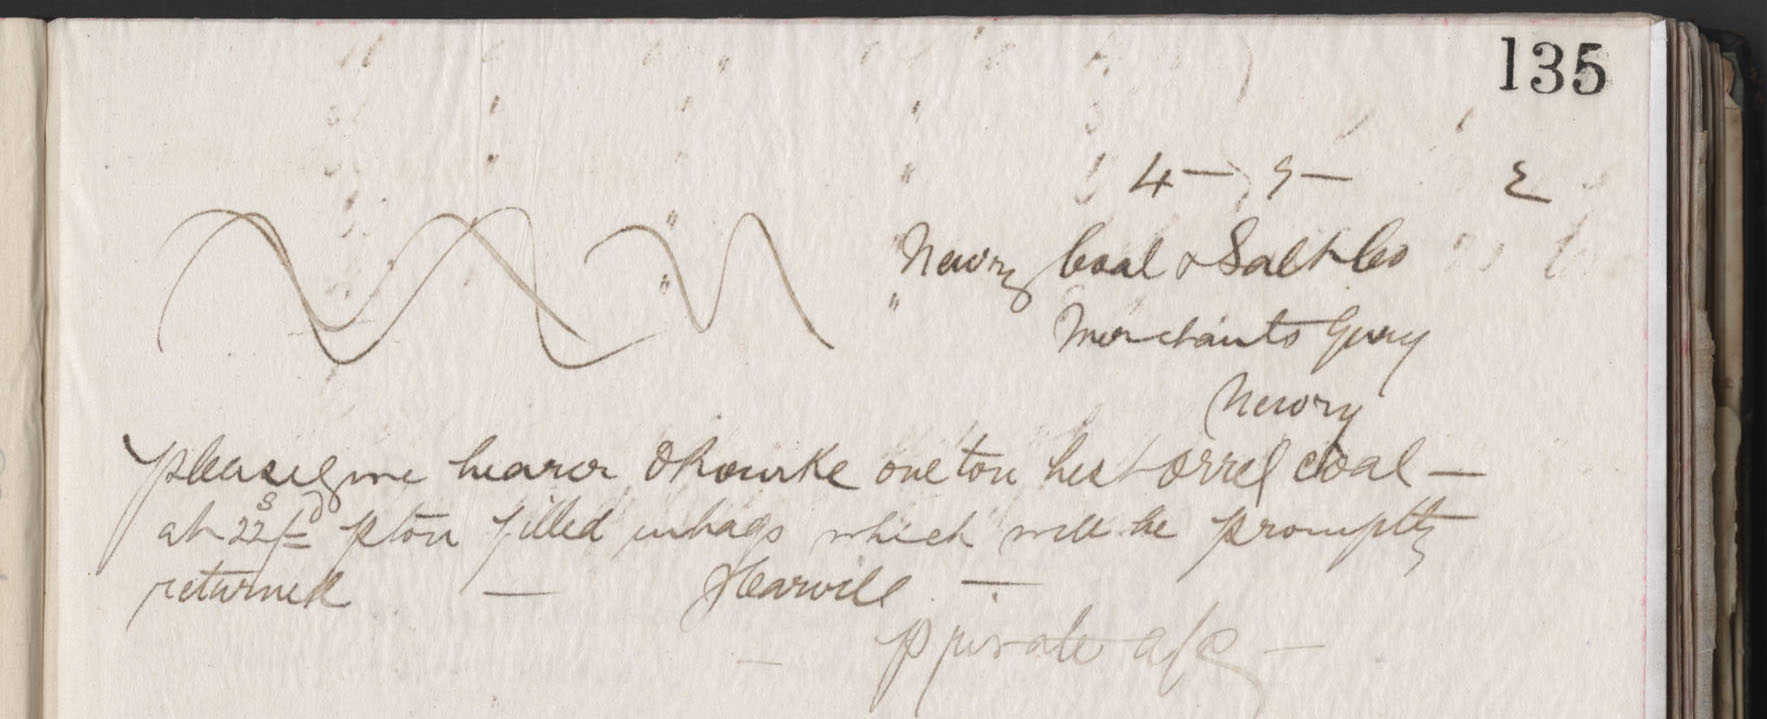 135
4 — 5 — 2
Newry Coal & Salt Co
Merchants Quay
Newry
please give bearer O Rourke one ton best Orrel coal —
at 22s/=d p ton filled in bags which will be promptly
returned —
p private a/c —